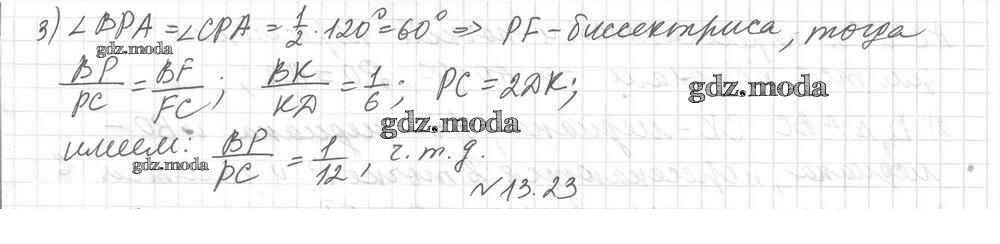 3) ∠BPA = ∠CPA = 1/2 · 120° = 60° ⇒ PF - биссектриса, тогда
gdz.moda
BP/PC = BF/FC; BK/KD = 1/6; PC = 2DK;
gdz.moda
gdz.moda
имеем: BP/PC = 1/12, ч.т.д.
gdz.moda
№13.23